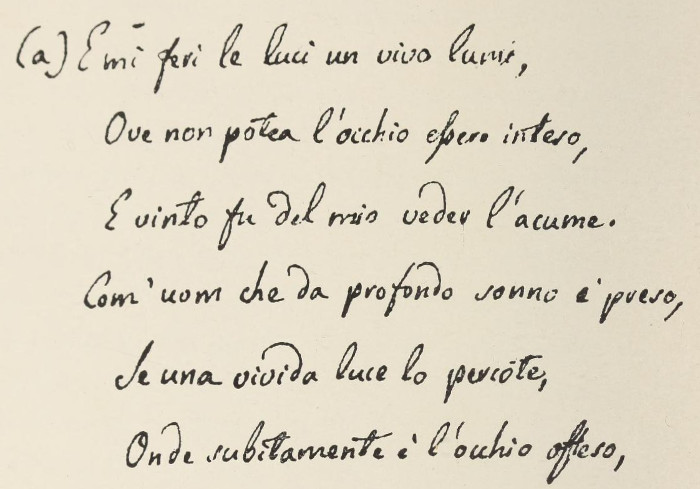 (a) E mi feri le luci un vivo lume,
Ove non potea l'occhio essere inteso,
E vinto fu del mio veder l'acume.
Com' uom che da profondo sonno è preso,
Se una vivida luce lo percóte,
Onde subitamente è l'occhio offeso,